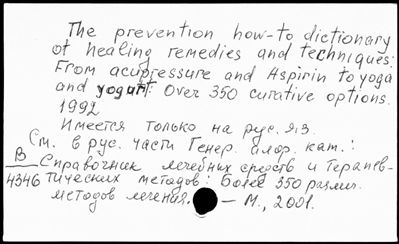 The prevention how-to dictionary
of healing remedies and techniques:
From acupressure and Aspirin to yoga
and yogurt: Over 350 curative options.
1992
Имеется только на рус. яз.
См. в рус. части Генер. алф. кат.:
В Справочник лечебных средств и терапев-
4346 тических методов: Более 350 различ.
методов лечения. – М., 2001.